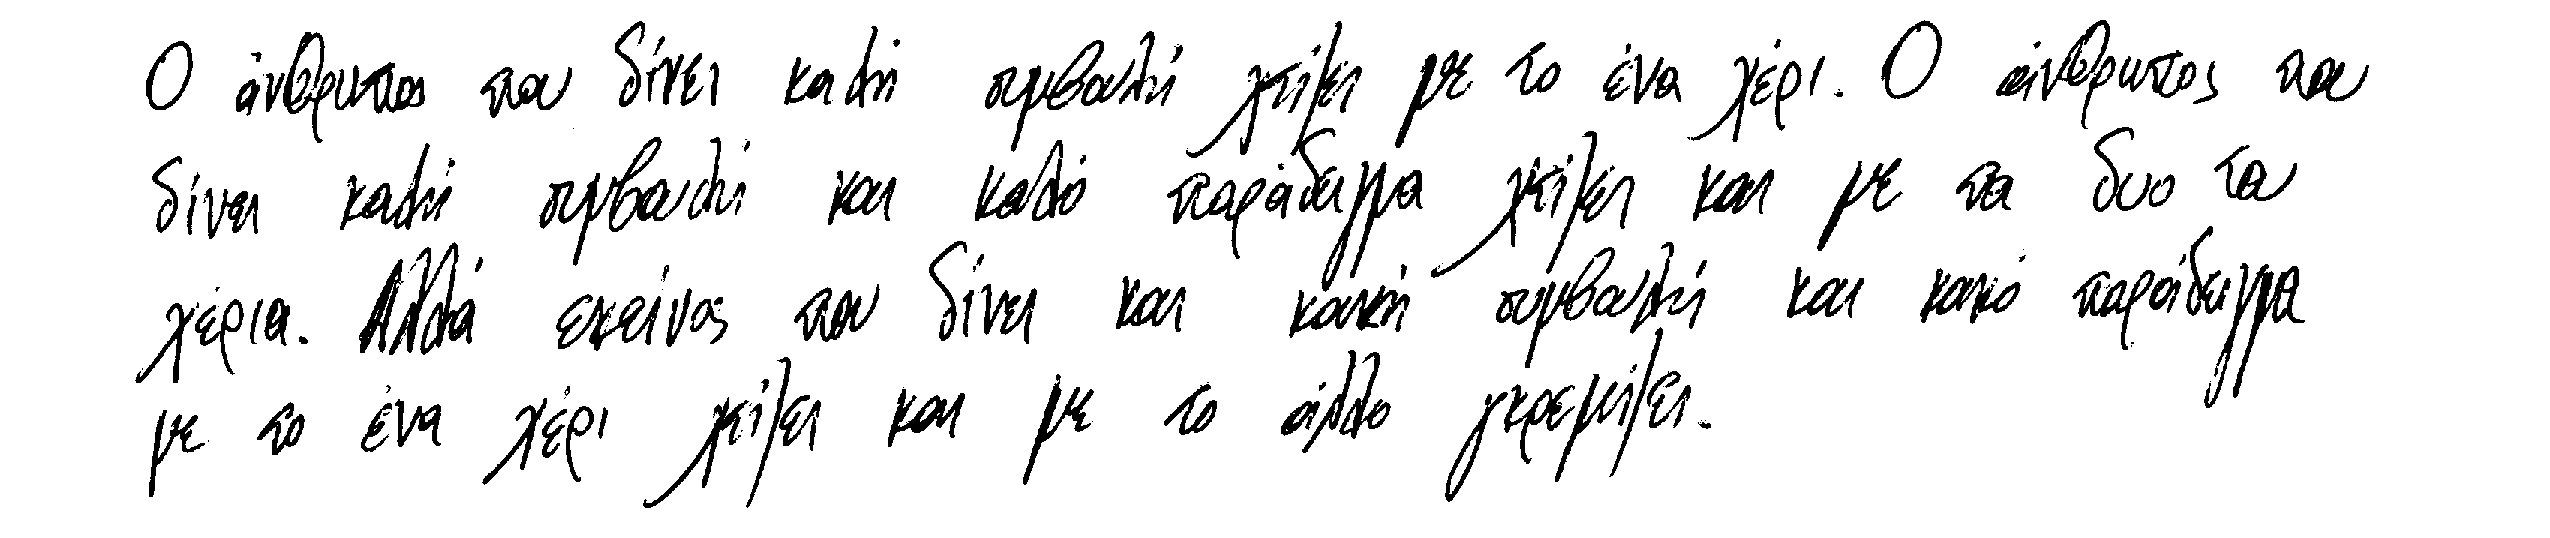 Ο άνθρωπος που δίνει καλή συμβουλή χτίζει με το ένα χέρι. Ο άνθρωπος που
δίνει καλή συμβουλή και καλό παράδειγμα χτίζει και με τα δυο του
χέρια. Αλλά εκείνος που δίνει και κακή συμβουλή και κακό παράδειγμα
με το ένα χέρι χτίζει και με το άλλο γκρεμίζει.